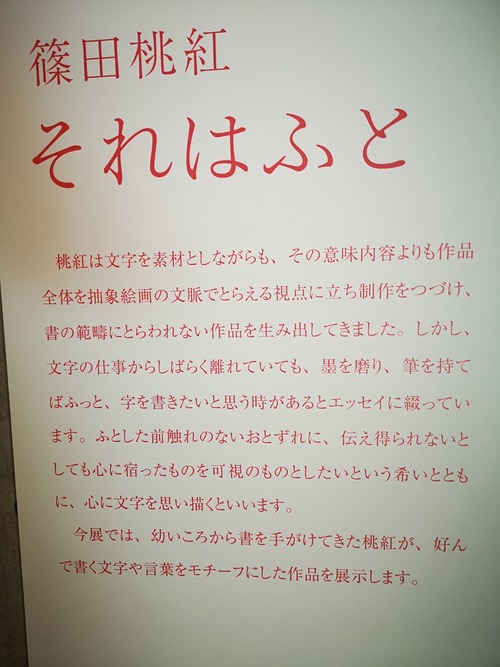 篠田桃紅
それはふと
桃紅は文字を素材としながらも、その意味内容よりも作品
全体を抽象絵画の文脈でとらえる視点に立ち制作をつづけ、
書の範疇にとらわれない作品を生み出してきました。しかし、
文字の仕事からしばらく離れていても、墨を磨り、筆を持て
ばふっと、字を書きたいと思う時があるとエッセイに綴ってい
ます。ふとした前触れのないおとずれに、伝え得られないと
しても心に宿ったものを可視のものとしたいという希いととも
に、心に文字を思い描くといいます。
今展では、幼いころから書を手がけてきた桃紅が、好ん
で書く文字や言葉をモチーフにした作品を展示します。